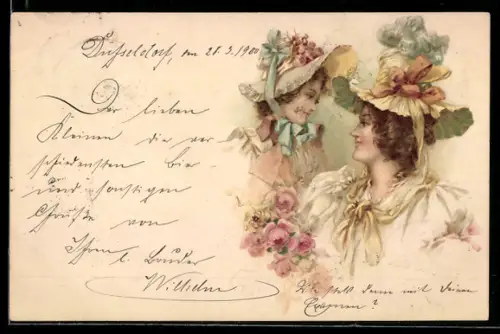 Düsseldorf, den 21.3.1900
Der lieben
Kleinen die ver
schiedensten Bier
und sonstigen
Grüße von
Ihrem l. Bruder
Wilhelm
Wie steht denn mit Deinem
Examen?